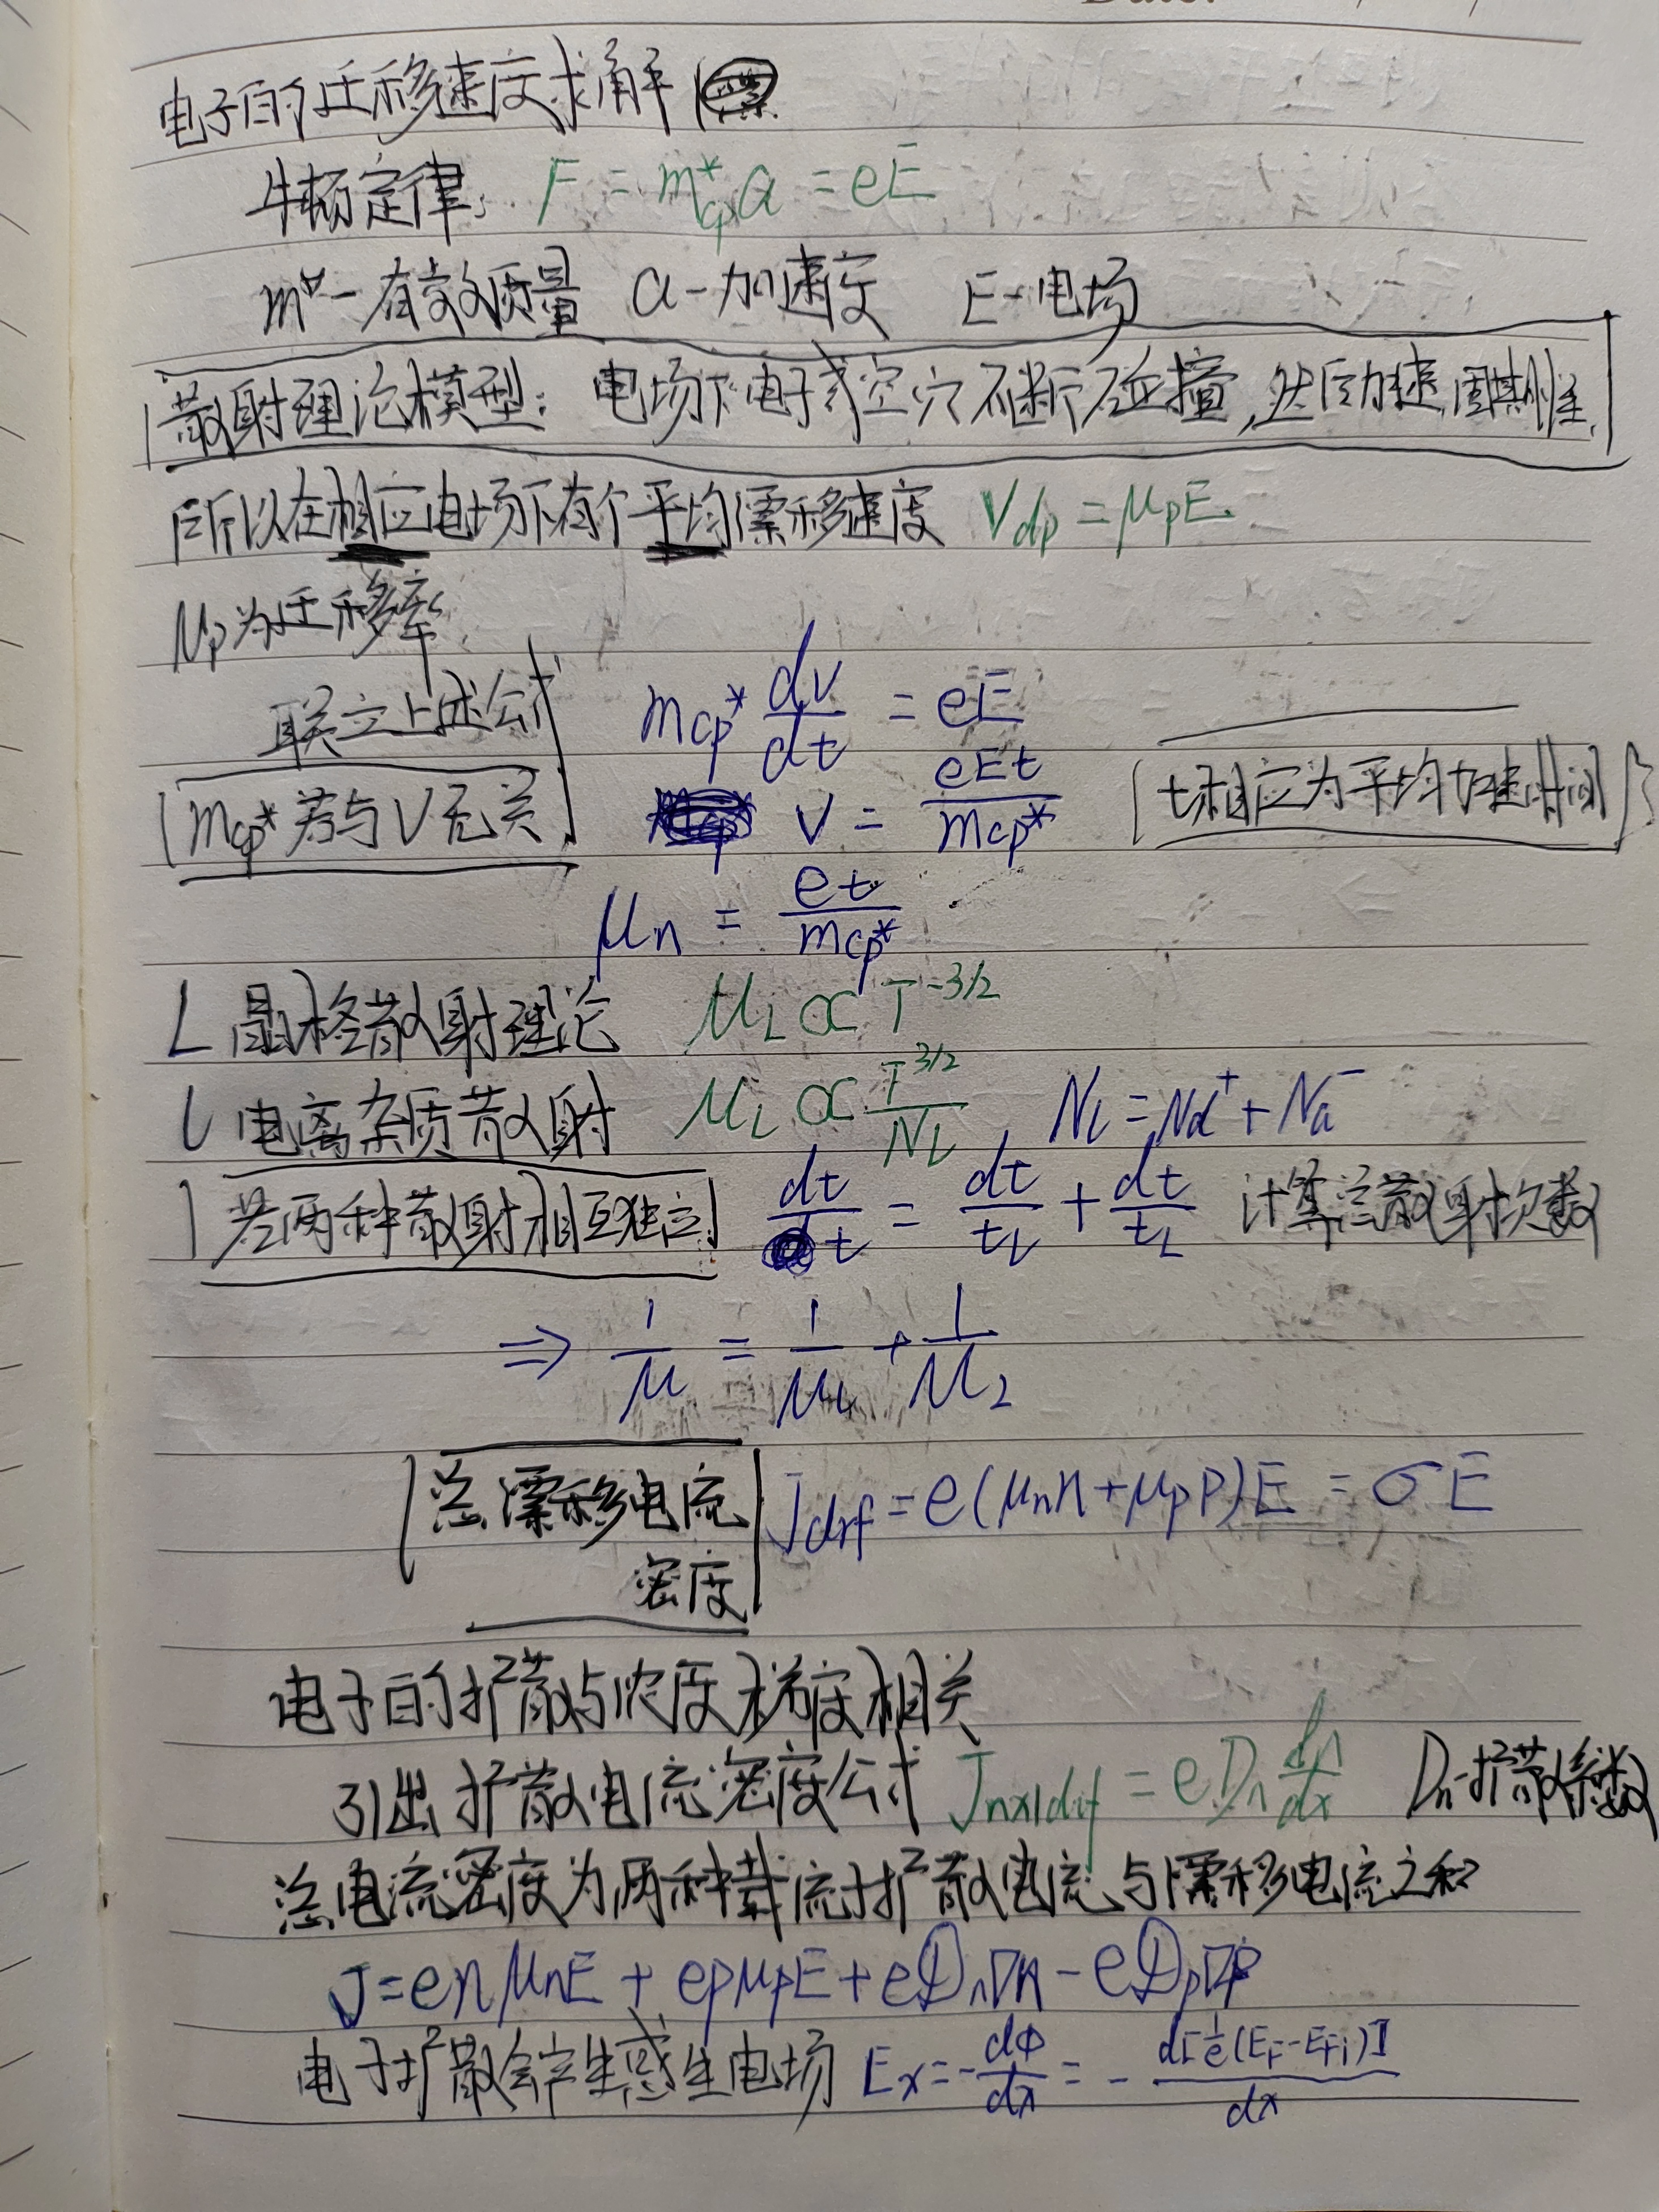 电子的迁移速度求解
牛顿定律: F = m*cp a = eE
m*-有效质量 a-加速度 E-电场
散射理论模型: 电场下电子或空穴不断碰撞,然后加速,周期性.
所以在相应电场下有个平均漂移速度 Vdp = μpE.
μp为迁移率
联立上述公式 mcp* dv/dt = eE
mcp*若与V无关 V = eEt/mcp* t相应为平均加速时间
μn = et/mcp*
L 晶格散射理论 μL ∝ T^-3/2
L 电离杂质散射 μL ∝ T^3/2/NL NL = Nd+ + Na-
若两种散射相互独立 dt/t = dt/tL + dt/tL 计算总散射次数
⇒ 1/μ = 1/μL + 1/μ2
总漂移电流 Jdrf = e(μnn+μpp)E = σE
密度
电子的扩散与浓度梯度相关
引出扩散电流密度公式 Jnx|dif = eDn dn/dx Dn-扩散系数
总电流密度为两种载流子扩散电流与漂移电流之和
J = enμnE + epμpE + eDn∇n - eDp∇p
电子扩散会产生感生电场 Ex = -dΦ/dx = - d[1/e(EF-EFi)]/dx